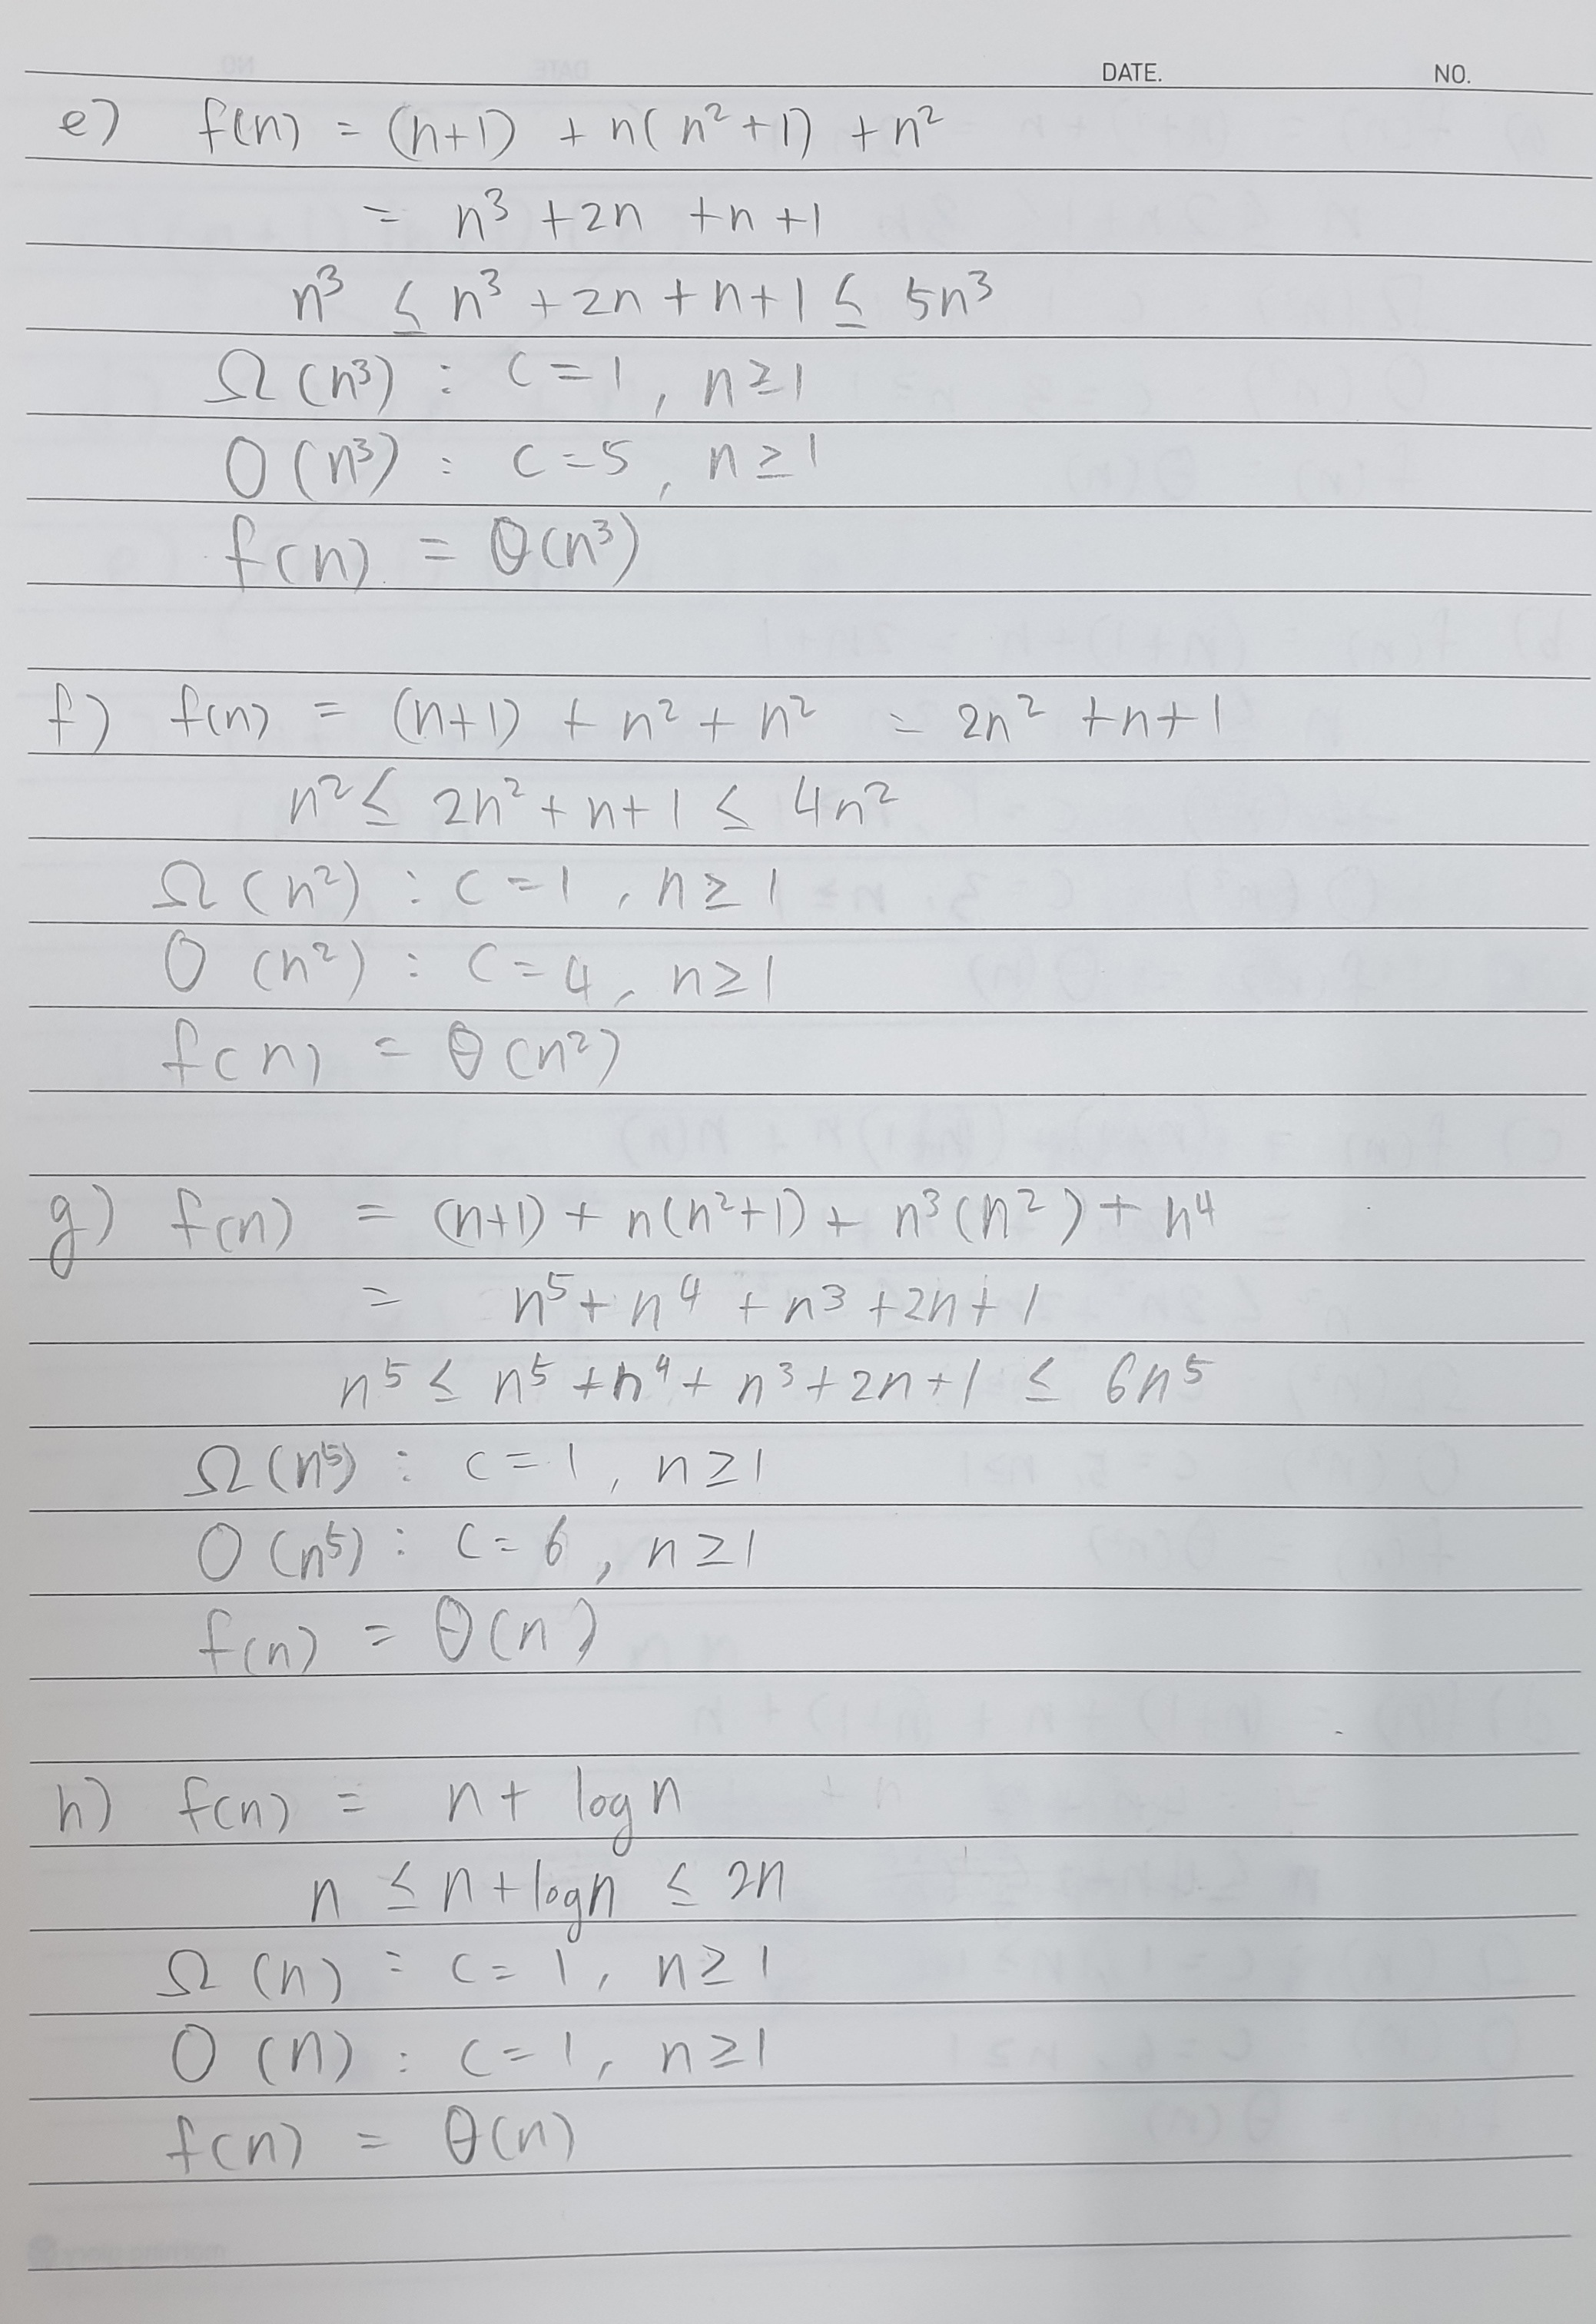 DATE. NO.
e) f(n) = (n+1) + n(n²+1) + n²
= n³ +2n +n +1
n³ ≤ n³ +2n +n+1 ≤ 5n³
Ω(n³) : c=1, n≥1
O(n³) : c=5, n≥1
f(n) = θ(n³)
f) f(n) = (n+1) + n² + n² = 2n² +n+1
n² ≤ 2n² + n+1 ≤ 4n²
Ω(n²) : c=1, n≥1
O(n²) : c=4, n≥1
f(n) = θ(n²)
g) f(n) = (n+1) + n(n²+1) + n³(n²) + n⁴
= n⁵ + n⁴ + n³ +2n+1
n⁵ ≤ n⁵ +n⁴ + n³ +2n+1 ≤ 6n⁵
Ω(n⁵) : c=1, n≥1
O(n⁵) : c=6, n≥1
f(n) = θ(n)
h) f(n) = n+ log n
n ≤ n+logn ≤ 2n
Ω(n) : c=1, n≥1
O(n) : c=1, n≥1
f(n) = θ(n)